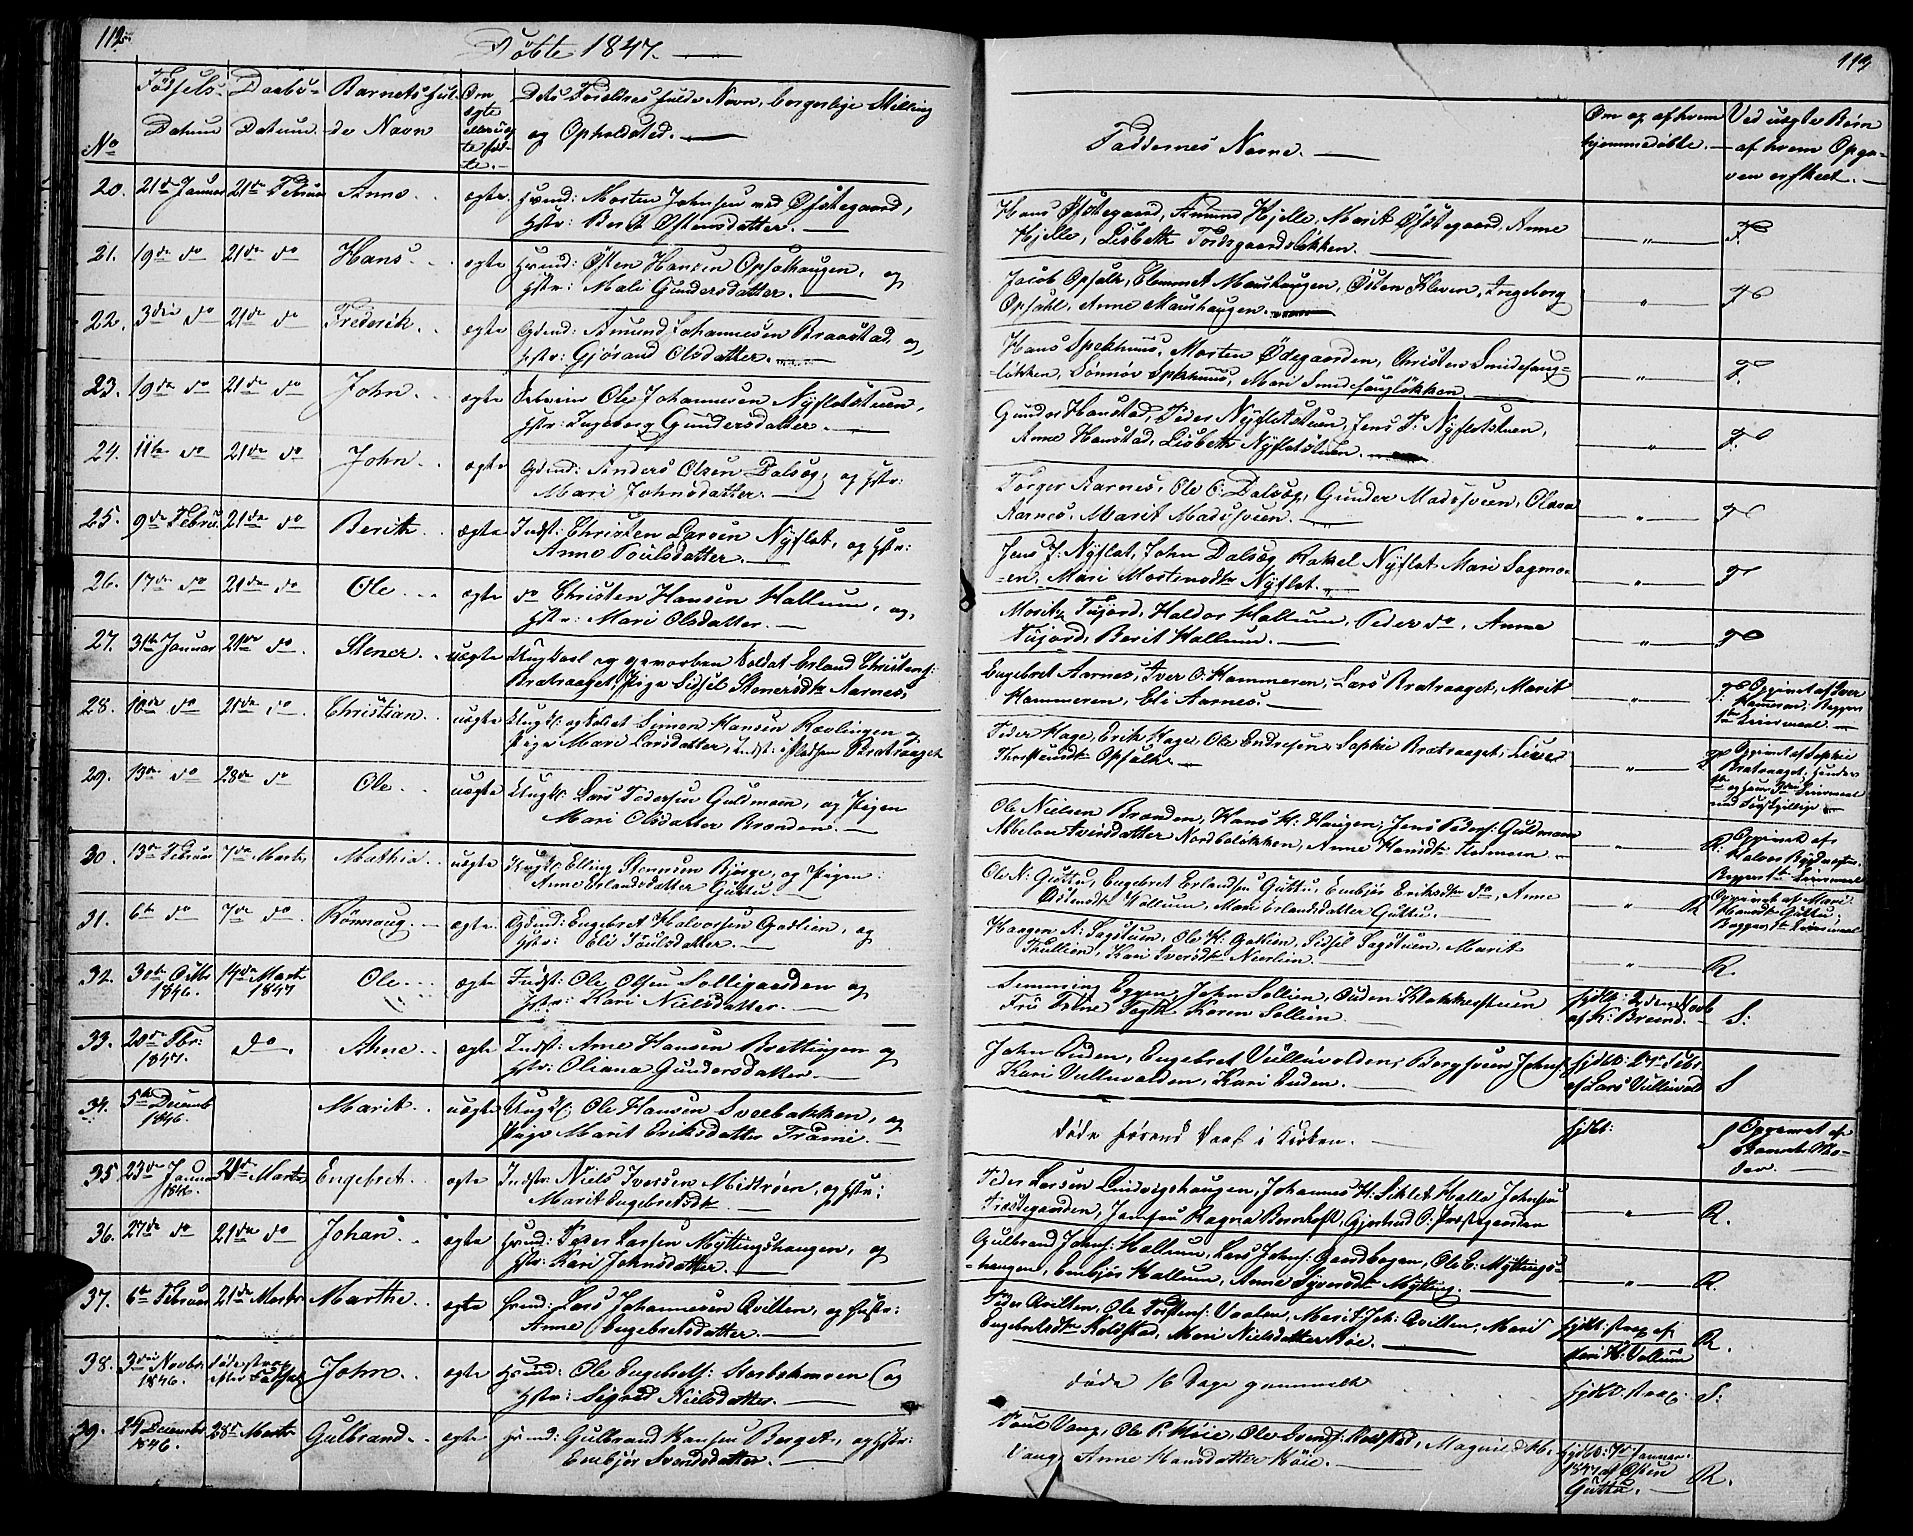 112
Døbte 1847.
No
Fødsels-
Datum
Daabs-
Datum
Barnets ful-
de Navn
Om
ægte
eller uæg-
te fød-
te.
Dets Forældres fulde Navn, borgerlige Stilling
og Opholdsted.
20. 21de Januar 21de Februar Anne ægte Hmd: Morten Johnsen med Øfstegaard,
Hstr: Berit Østensdatter.
21. 19de do 21de do Hans ægte Hmd: Østen Hansen Opsalhaugen, og
Hstr: Mali Gundersdatter.
22. 3die do 21de do Frederik ægte Gdmd: Amund Johannesen Braastad, og
Hstr: Gjørand Olsdatter.
23. 19de do 21de do John ægte Ole Johannesen Nyfletstuen,
Hstr: Ingeborg Gundersdatter.
24. 11te do 21de do John ægte Gdmd: Anders Olsen Dalseg, og Hstr:
Mari Johnsdatter.
25. 9de Febru. 21de do Berith ægte Indst: Christen Larsen Nyflet, og Hstr:
Anne Poulsdatter.
26. 17de do 21de do Ole ægte do Christen Hansen Hallum, og
Hstr: Mari Olsdatter.
27. 31te Januar 21de do Stener uægte Ungkarl og geworben Soldat Erland Christens:
Bratraaget, Pige Sidsel Stenersdtr Aarnes,
28. 10de do 21de do Christian uægte Ungk: og Soldat Simen Hansen Rævlingen og
Pige Mari Larsdatter, Indst: Pladsen Bratraaget
29. 13de do 28de do Ole uægte Ungk: Lars Pedersen Guldmoen, og Pigen
Mari Olsdatter Brænden.
30. 13de Februar 7de Marts Mathia uægte Ungk: Elling Stensen Bjørge, og Pigen
Anne Erlandsdatter Guttu
31. 6te do 7de do Rønnaug ægte Gdmd: Engebret Halvorsen Godlien, og
Hstr: Eli Poulsdatter.
32. 30te Octbr 1846. 14de Marts 1847 Ole ægte Indst: Ole Olsen Solligaarden og
Hstr: Kari Nielsdatter.
33. 20de Fbr: 1847. do Anne ægte Indst: Arne Hansen Brettingen og
Hstr: Oliana Gundersdatter.
34. 5te Decemb 1846. Marit uægte Ungk: Ole Hansen Sveebakken, og
Pige Marit Eriksdatter Trømi.
35 23de Januar 1846. 21de Marts Engebret ægte Indstr: Niels Iversen Midtrøen, og Hstr:
Marit Engebretsdtr
36. 27de do 21de do Johan ægte Hmd: Peder Larsen Myttingshaugen, og
Hstr: Kari Johnsdatter.
37. 6te Februar 21de Marts Marthe ægte Hmd: Lars Johannesen Qvilten, og Hustr:
Anne Engebretsdatter.
38. 3die Novbr. 1846. døde strax efter Fødsel John ægte Hmd: Ole Engebrets: og
Hstr: Sigrid Nielsdatter.
39. 24 Decembr 1846. 28de Marts Gulbrand ægte Hmd: Gulbrand Hansen Berget, og Hstr:
Embjør Svendsdatter.
113
Faddernes Navne.
Om og af hvem
hjemmedøbte.
Ved uægte Børn
af hvem Opga-
ven er skeet.
Hans Øfstegaard, Amund Hjelle, Marit Øfstegaard, Anne
Hjelle, Lisbeth Fordsgaardsløkken. " F.
Jacob Opsahl, Clemmet Maushaugen, Østen Kleven, Ingeborg
Opsahl, Anne Maushaugen. " F
Hans Spekhuus, Morten Ødegaarden, Christen Smidesang-
løkken, Sønnøv Spekhuus, Mari Smedesangløkken. " F.
Gunder Hanestad, Peder Nyfletstuen, Jens P. Nyfletstuen,
Anne Hanestad, Lisbeth Nyfletstuen. " F.
Torger Aarnes, Ole O: Dalseg, Gunder Madssveen, Olava
Aarnes, Marit Madssveen. " F
Jens J: Nyflet, John Dalseg, Rakel Nyflet, Mari Sagmo-
en, Mari Mortensdtr Nyflet. " F
Moritz Fuford, Haldor Hallum, Peder do, Anne
Fuford, Berit Hallum. " F
Engebret Aarnes, Iver O: Hammeren, Lars Bratraaget, Marit
Hammeren, Eli Aarnes. " F. Opgivet af Iver
Hameren, Begges
1te Leiermaal.
Peder Hage, Erik Hage, Ole Endresen, Sophie Bratraaget, Lives
Opsahl. " F. Opgivet af Sophie
Bratraaget, hendes
1te og hans 2de Leiermaal
Ole Nielsen Brænden, Hans H: Haugen, Jens Peders: Guldmoen
Abbelon Iversdatter Nordbeløkken, Anne Hansdtr " R. Opgivet af
Halvor
Begges 1te Leiermaal
Ole N: Guttu, Engebret Erlandsen Guttu, Embjør Eriksdtr do, Anne
Østensdtr Vollum, Mari Erlandsdatter Guttu. " R Opgivet af Mari
Hansdtr Guttu,
Begges 1te Leiermaal
Haagen A: Sagstuen, Ole H: Gotlien, Sidsel Sagstuen, Marit
Thullien, Kari Iversdtr Neerlien. " R.
Simming Eggen, John Sollien, Ouden Klokkerstuen
Fru Trine Fogth Karen Sollien. hjdbt: af K: Brænd. S:
John Ouden, Engebret Vulluvolden, Bergsveen Johns:
Kari Vulluvolden, Kari Ouden. hjdbt: 27de Febr
af Lars Vulluvold S
døde førend Daab i Kirken. hjdbt: S Opgivet af
Barnets Mo-
der.
Peder Larsen Lindvigshaugen, Johannes H: Seklet Halle Johnsen
Præstegaarden, Jomfru Ragna Bernhoft, Gjertrud O: Præstegaarden " R.
Gulbrand Johns: Hallum, Lars Johns: Gaardbogen, Ole E: Myttings-
haugen, Embjør Hallum, Anne Syversdtr Mytting. " R.
Peder Qvilten, Ole Torstens: Vaalen, Marit Joh: Qvilten, Mari
Engebretsdtr Koldstad, Mari Nielsdatter Køie. hjdbt: strax af
Mari H: Vollum R.
døde 16 Dage gammelt hjdbt. strax. S:
Poul Vang, Ole P. Køie, Ole Svends: Kolstad, Magnild Ib:
Vang, Anne Hansdatter Køie. hjdbt: 7de Januar
1847 af Østen
Guttu. R.